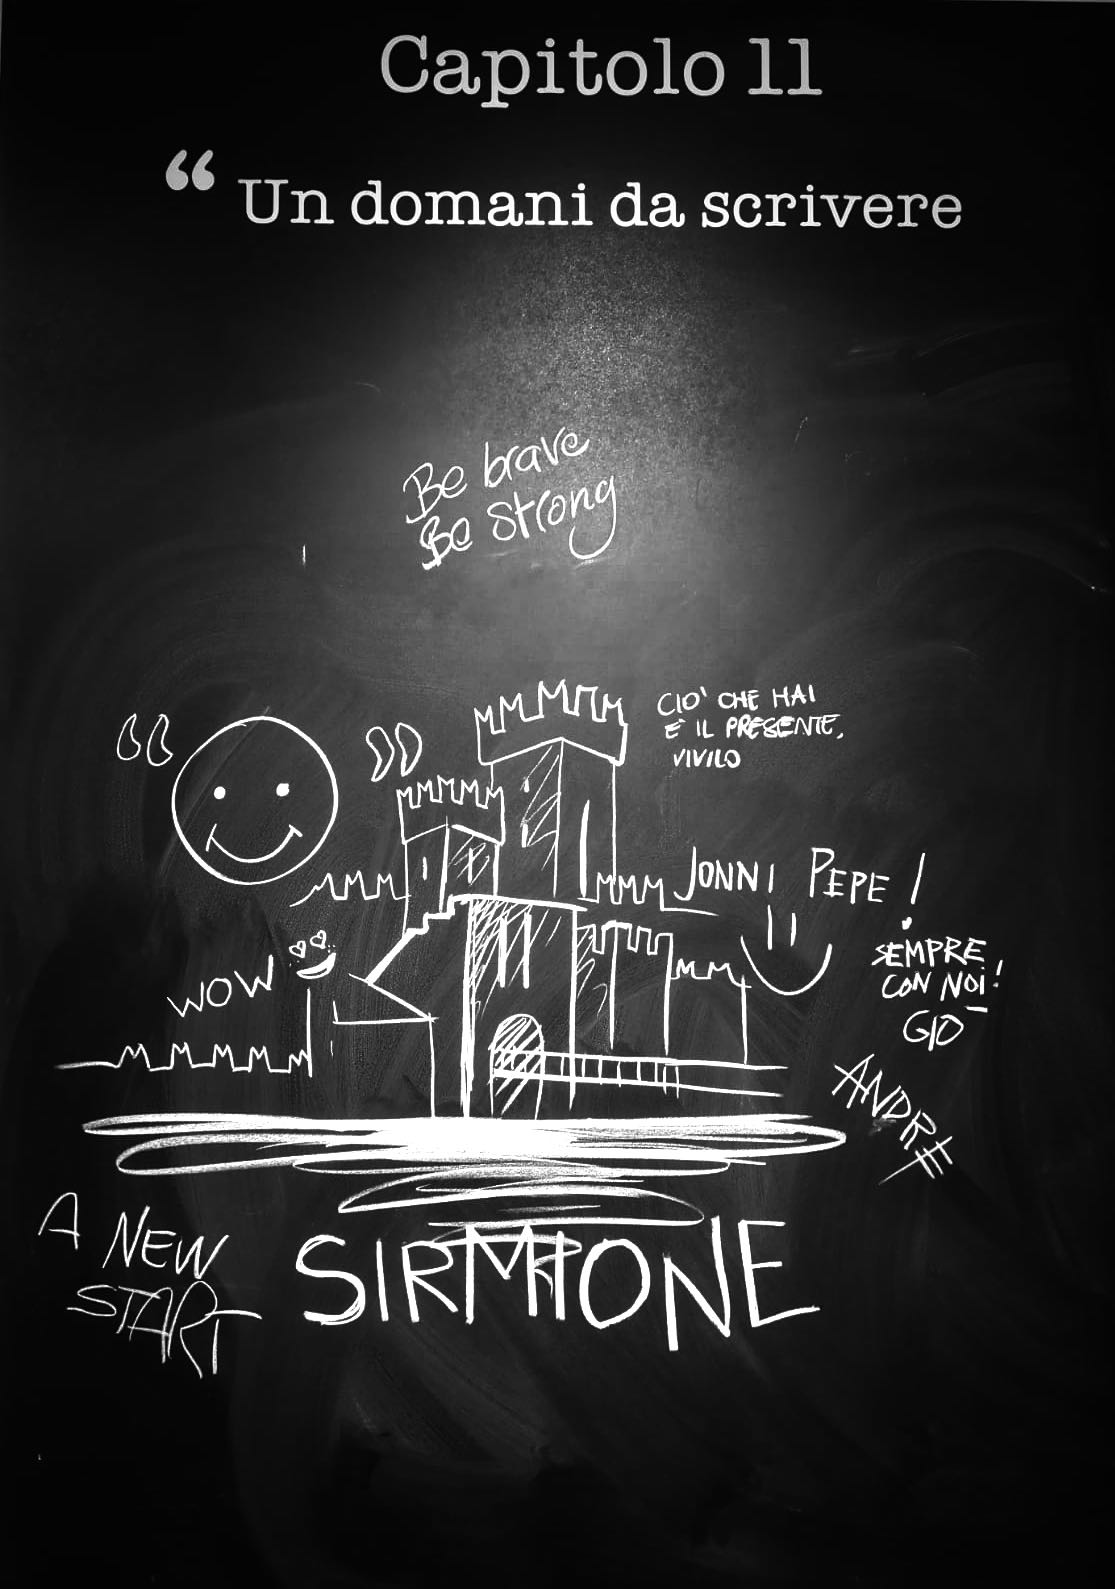 Capitolo 11
“ Un domani da scrivere
Be brave
Be strong
CIO' CHE HAI
E' IL PRESENTE,
VIVILO
JONNI PEPE!
SEMPRE
CON NOI!
GIO
WOW
ANDRE
A NEW
START
SIRMIONE